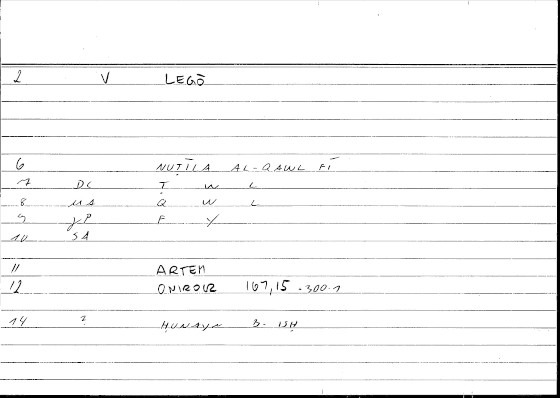 2 V LEGŌ
6 NUṬĪLA AL-QAWL FĪ
7 DC Ṭ W L
8 MA Q W L
9 JP F Y
10 SA
11 ARTEM
12 ONIROCR 167,15 -300-1
14 ? ḤUNAYN B. ISḤ